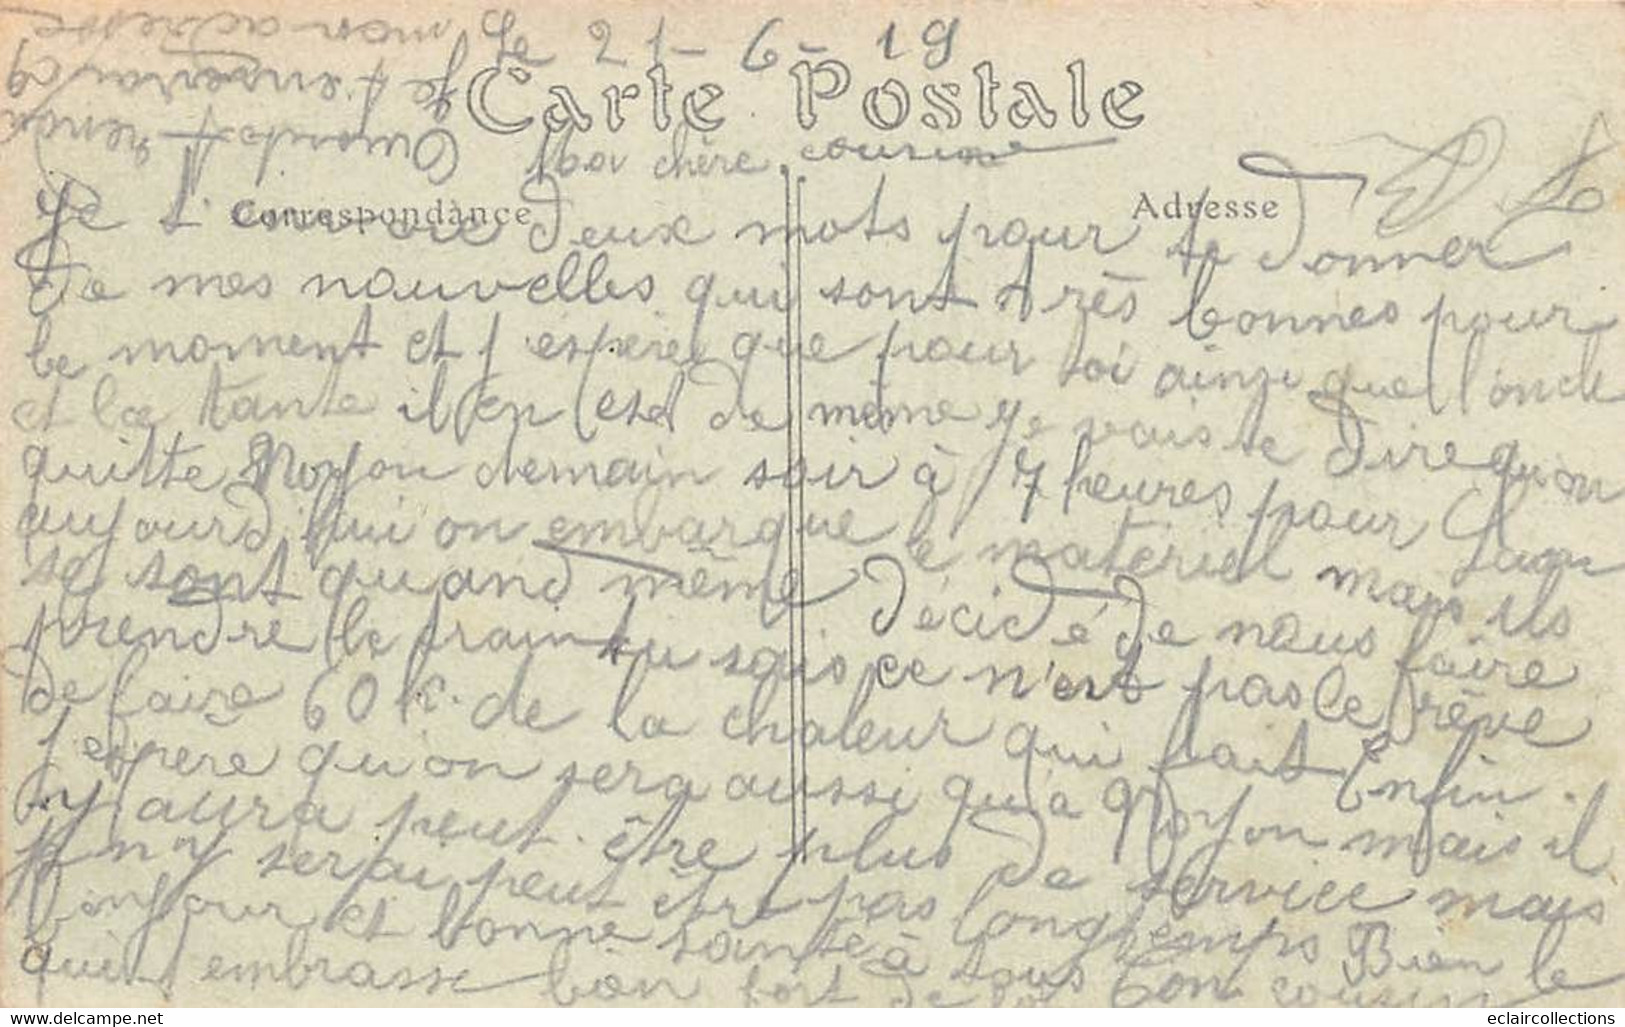 Le 21-6-19
Carte Postale
Ma chère cousine
Correspondance
Adresse
Je t'envoie deux mots pour te donner
de mes nouvelles qui sont très bonnes pour
le moment et j'espère que pour toi ainsi que l'oncle
et la tante il en est de même je vais te dire qu'on
quitte Noyon demain soir à 7 heures pour Laon
aujourd'hui on embarque le matériel mais ils
se sont quand même décidé de nous faire
prendre le train tu sais ce n'est pas le rêve
de faire 60 k. de la chaleur qui fait Enfin.
j'espère qu'on sera aussi qu'a Noyon mais il
y aura peut être plus de service mais
je n'y serai peut être pas longtemps Bien le
bonjour et bonne santé à tous ton cousin
qui t'embrasse bien fort de
Quand
je t'enverrai
mon adresse
eclaircollections